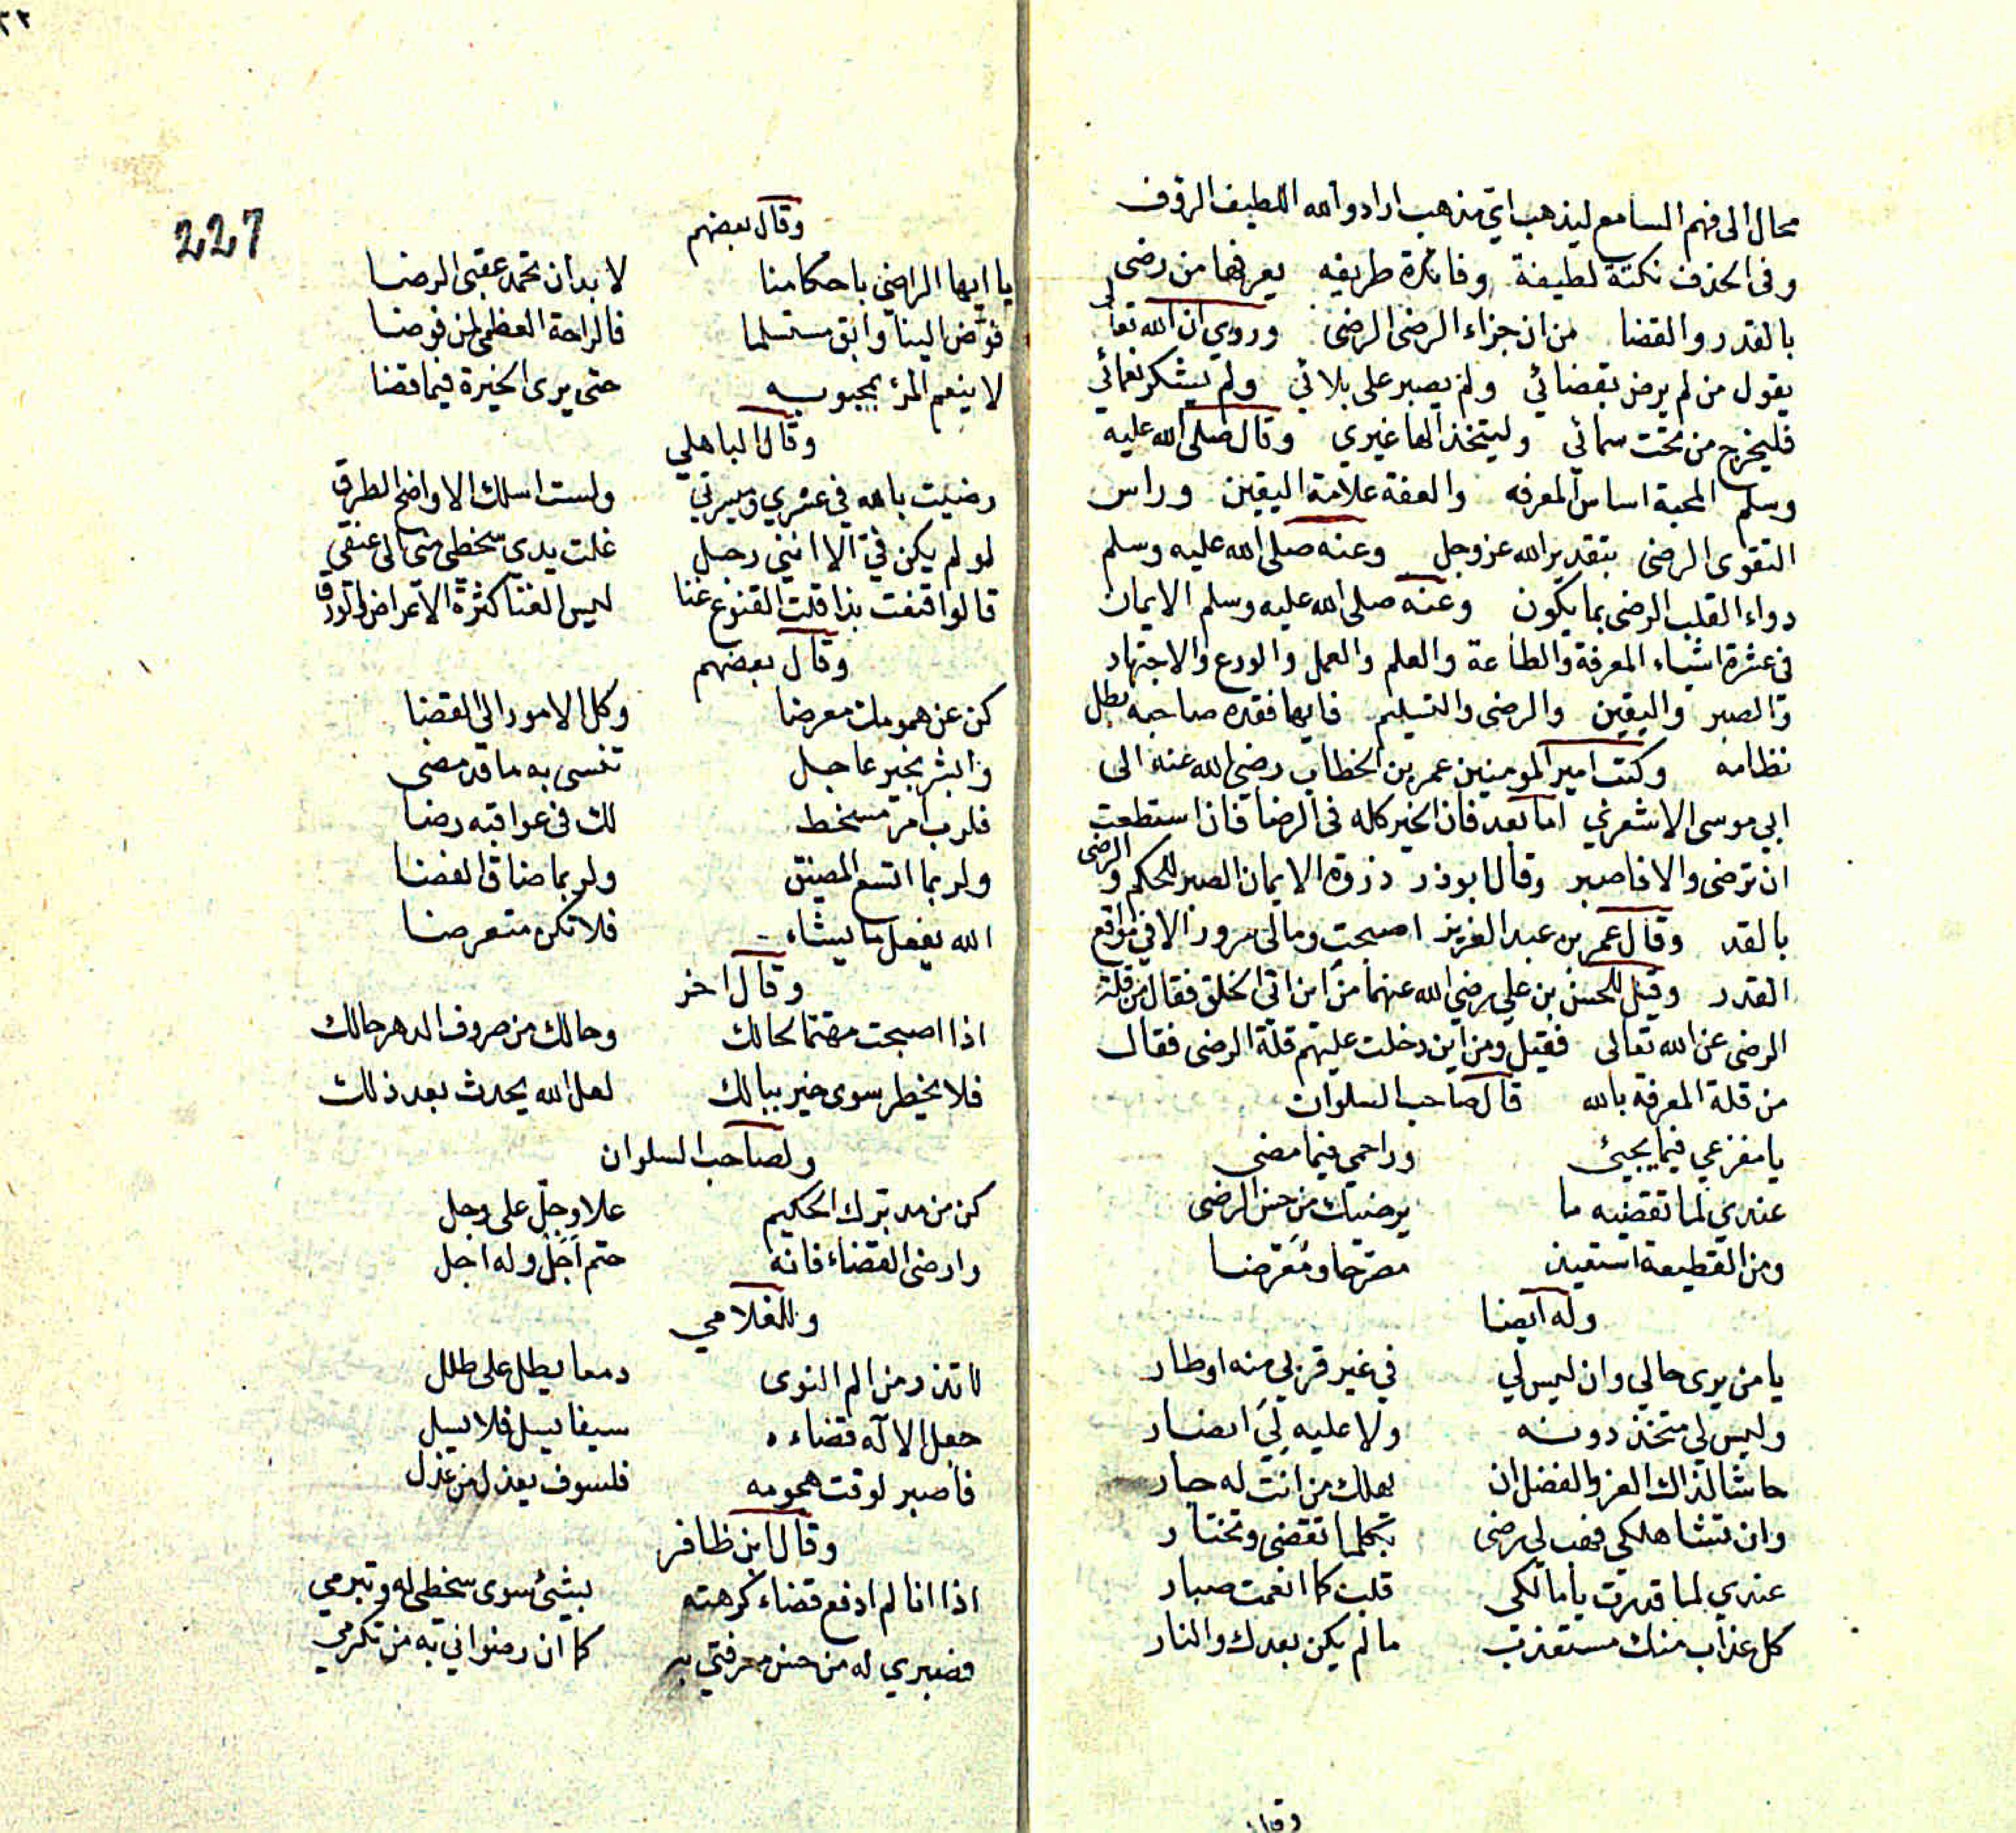 محال الى فهم السامع ليذهب اي مذهب اراد والله اللطيف الرؤف
وفى الحذف نكتة لطيفة وفائدة طريفه يعرفها من رضى
بالقدر والقضا من ان جزاء الرضى الرضى وروي ان الله تعالى
يقول من لم يرض بقضائي ولم يصبر على بلائي ولم يشكر نعمائي
فليخرج من تحت سمائي وليتخذ الها غيري وقال صلى الله عليه
وسلم المحبة اساس المعرفه والعفة علامة اليقين وراس
التقوى الرضى بتقدير الله عز وجل وعنه صلى الله عليه وسلم
دواء القلب الرضى بما يكون وعنه صلى الله عليه وسلم الايمان
فى عشرة اشياء المعرفة والطاعة والعلم والعمل والورع والاجتهاد
والصبر واليقين والرضى والتسليم فايها فقده صاحبه بطل
نظامه وكتب امير المومنين عمر بن الخطاب رضي الله عنه الى
ابي موسى الاشعري اما بعد فان الخير كله فى الرضا فان استطعت
ان ترضى والا فاصبر وقال ابوذر ذروة الايمان الصبر للحكم والرضى
بالقد وقال عمر بن عبد العزيز اصبحت ومالى سرور الا في مواقع
القدر وقيل للحسن بن علي رضي الله عنهما من اين اتى الخلق فقال من قلة
الرضى عن الله تعالى فقيل ومن اين دخلت عليهم قلة الرضى فقال
من قلة المعرفة بالله قال صاحب السلوان
يا مفزعي فيما يجيئ وراحمي فيما مضى
عندي لما تقضيه ما يرضيك من حسن الرضى
ومن القطيعة استعيذ مصرحا ومعرضا
وله ايضا
يا من يرى حالي وان ليس لي في غير قربي منه اوطار
وليس لي متخذ دونه ولا عليه لي انصار
حاشا لذاك العز والفضل ان يهلك من انت له جار
وان تشا هلكي فهب لي رضى بكلما تقضى وتختار
عندي لما قدرت يا مالكي قلب كما انعمت صبار
كل عذاب منك مستعذب ما لم يكن بعدك والنار
وقال
227
وقال بعضهم
يا ايها الراضي باحكامنا لا بد ان تحمد عقبى الرضا
فوض الينا وابق مستسلما فالراحة العظمى لمن فوضا
لا ينعم المرء بمحبوبه حتى يرى الخيرة فيما قضا
وقال الباهلي
رضيت بالله في عسري وميسرتي ولست اسلك الا واضح الطرق
لو لم يكن في الا انني رجل غلت يدي سخطي متى الى عنقي
قالوا قنعت بذا قلت القنوع غنا ليس الغنا كثرة الاعراض والورق
وقال بعضهم
كن عن همومك معرضا وكل الامور الى القضا
وابشر بخير عاجل تنسى به ما قد مضى
فلرب امر مسخط لك فى عواقبه رضا
ولربما اتسع المضيق ولربما ضاق الفضا
الله يفعل ما يشاء فلا تكن متعرضا
وقال اخر
اذا اصبحت مهتما لحالك وحالك من صروف الدهر حالك
فلا يخطر سوى خير ببالك لعل الله يحدث بعد ذلك
ولصاحب السلوان
كن من مدبرك الحكيم علا وجل على وجل
وارضى القضاء فانه حتم اجل وله اجل
وللغلامي
لا تذر من الم النوى دمعا يطل على طلل
جعل الاله قضاءه سيفا يسل فلا يسل
فاصبر لوقت همومه فلسوف يعذل من عذل
وقال ابن ظافر
اذا انا لم ادفع قضاء كرهته بشيئ سوى سخطي له وتبرمي
فصبري له من حسن معرفتي به كما ان رضواني به من تكرمي